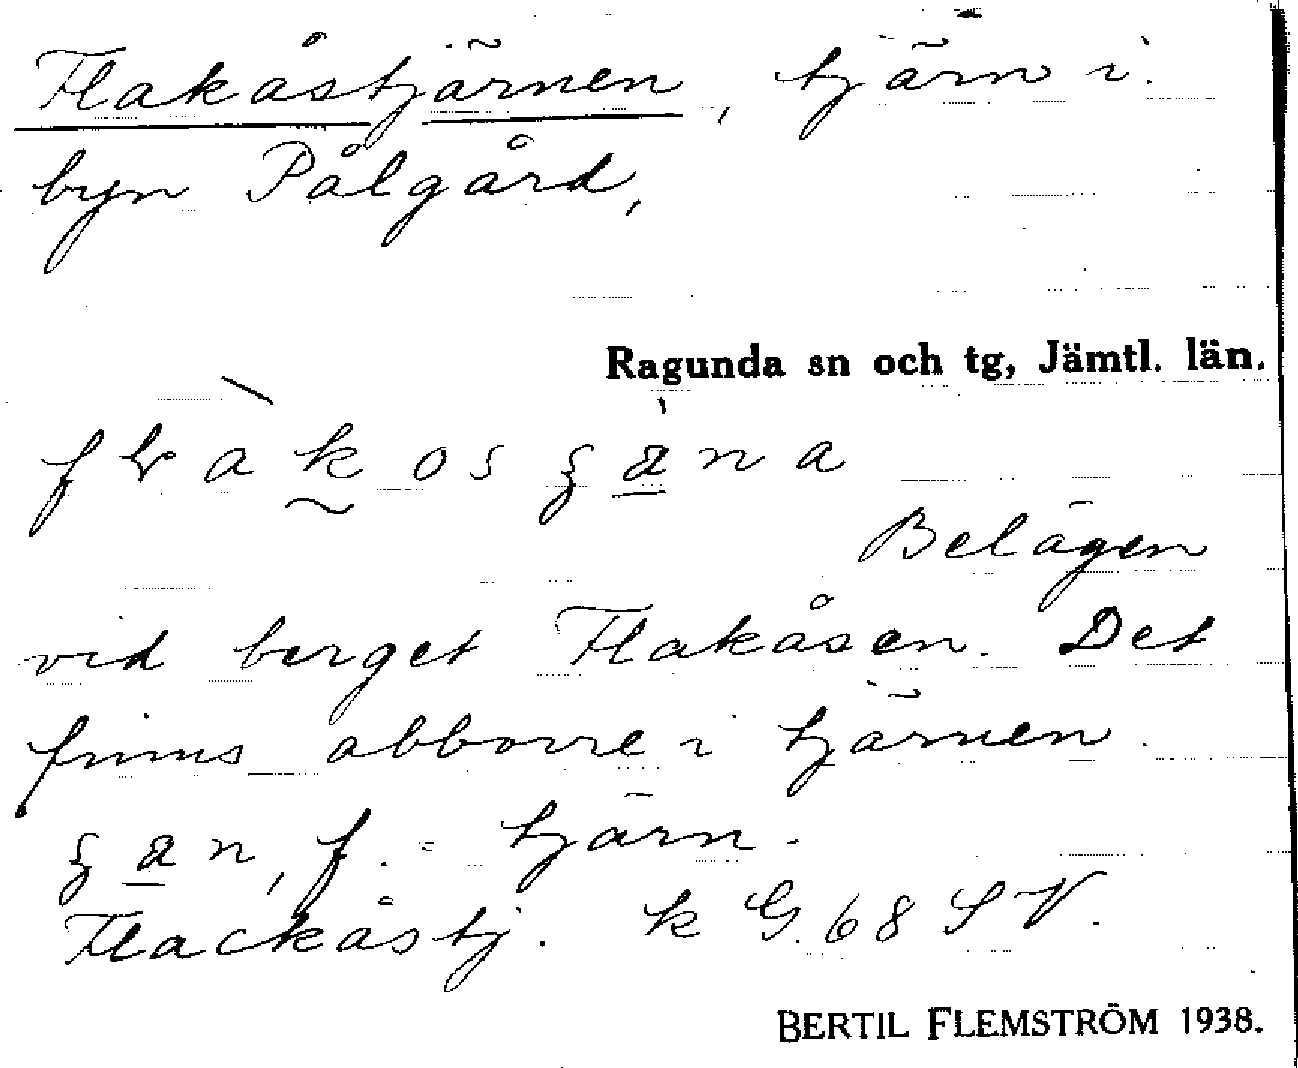 Flakåstjärnen, tjärn i
byn Pålgård,
Ragunda sn och tg, Jämtl. län.
Belägen
vid berget Flakåsen. Det
finns abborre i tjärnen.
f. = tjärn.
Flackåstj. k G. 68 SV.
BERTIL FLEMSTRÖM 1938.